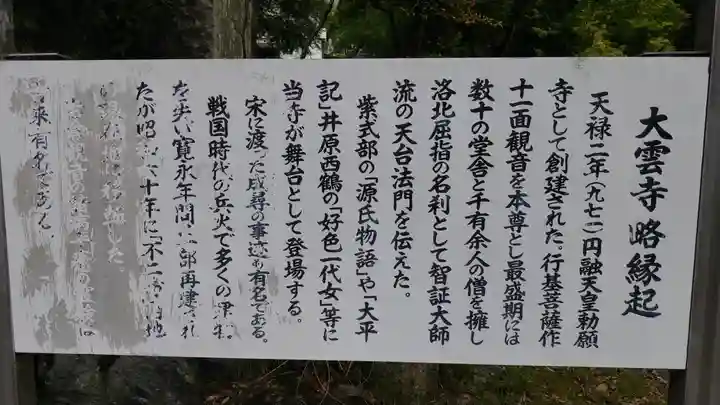 大雲寺略縁起
天禄二年(九七一)円融天皇勅願
寺として創建された。行基菩薩作
十一面観音を本尊とし最盛期には
数十の堂舎と千有余人の僧を擁し
洛北屈指の名刹として智証大師
流の天台法門を伝えた。
紫式部の「源氏物語」や「太平
記」井原西鶴の「好色一代女」等に
当寺が舞台として登場する。
宋に渡った成尋の事迹も有名である。
戦国時代の兵火で多くの
を失い寛永年間 部再建され
たが昭 十年に「不二 地
した。
は
有名である。